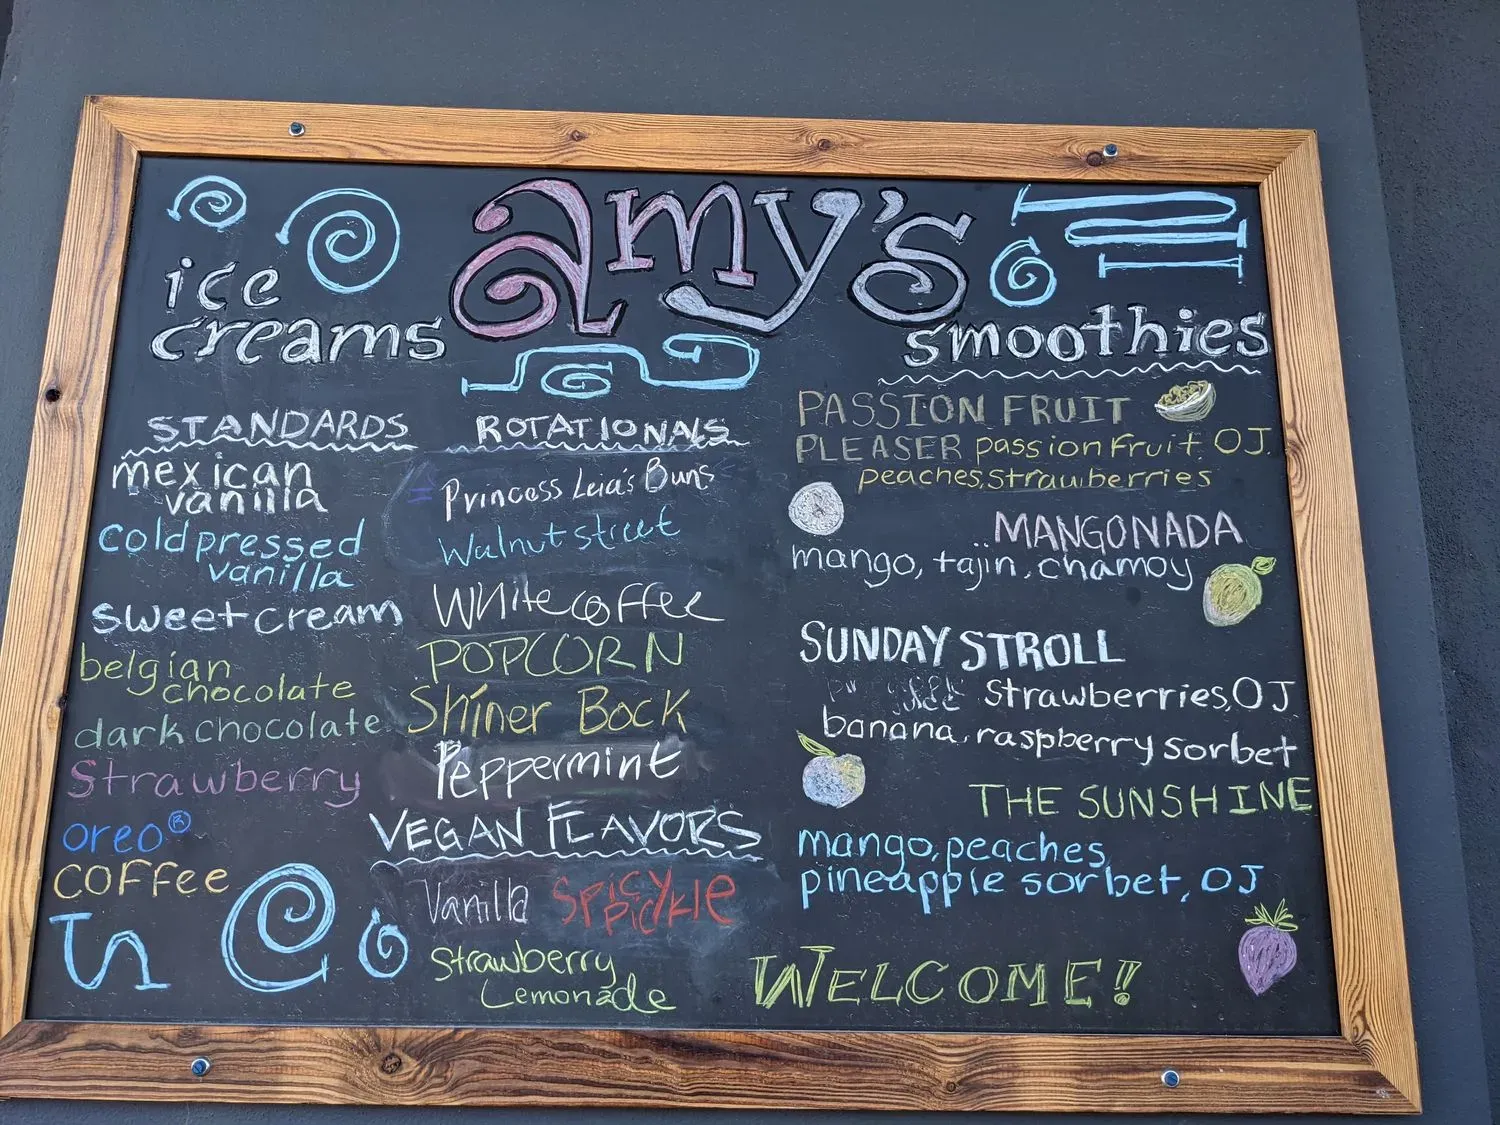 amy's
ice
creams
STANDARDS
mexican
vanilla
cold pressed
vanilla
sweet cream
belgian
chocolate
dark chocolate
Strawberry
oreo®
COFFee
ROTATIONALS
Princess Leia's Buns
Walnut street
White coffee
POPCORN
Shiner Bock
Peppermint
VEGAN FLAVORS
Vanilla SPICY
PICKLE
Strawberry
Lemonade
smoothies
PASSION FRUIT
PLEASER passion Fruit, OJ,
peaches, strawberries
MANGONADA
mango, tajin, chamoy
SUNDAY STROLL
strawberries, OJ
banana, raspberry sorbet
THE SUNSHINE
mango, peaches,
pineapple sorbet, OJ
WELCOME!